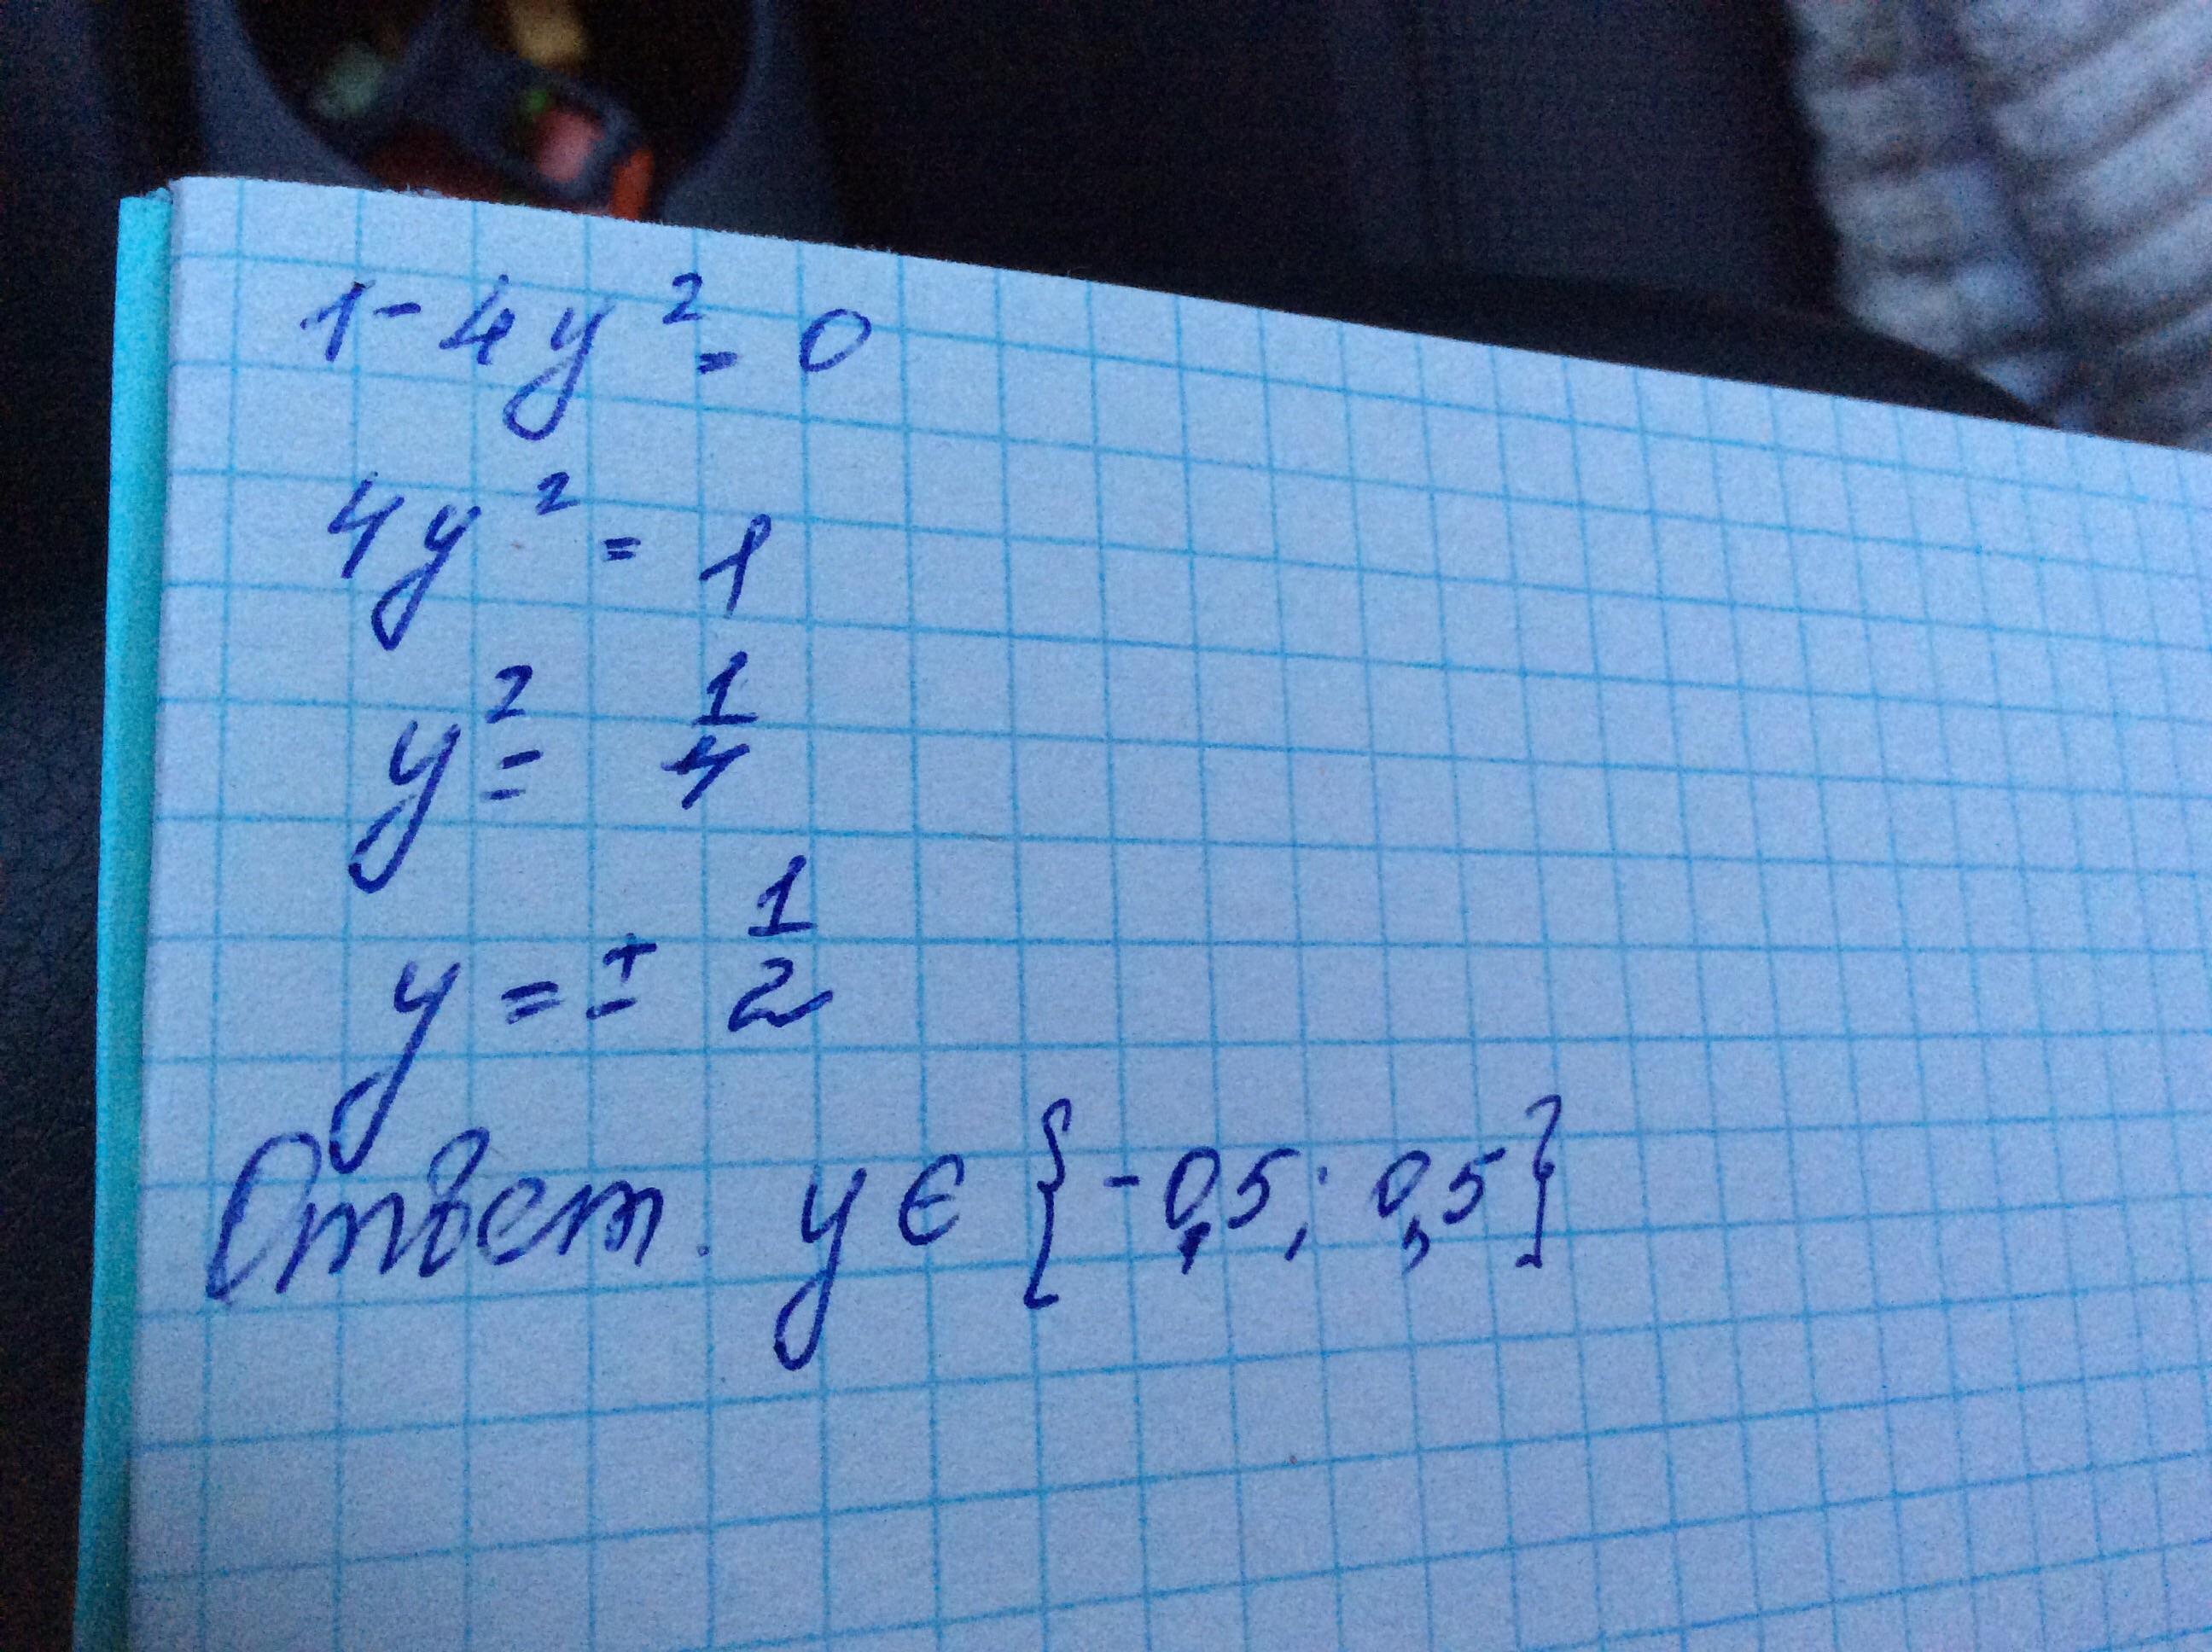 1 - 4y² = 0
4y² = 1
y² = 1/4
y = ± 1/2
Ответ. y ∈ {-0,5; 0,5}